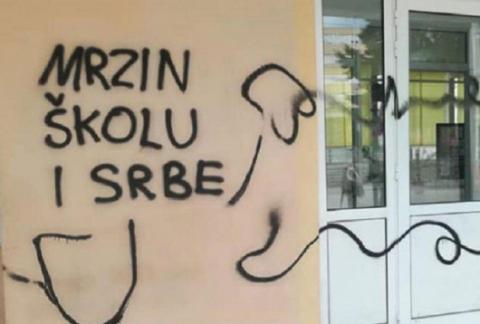 MRZIN
ŠKOLU
I SRBE